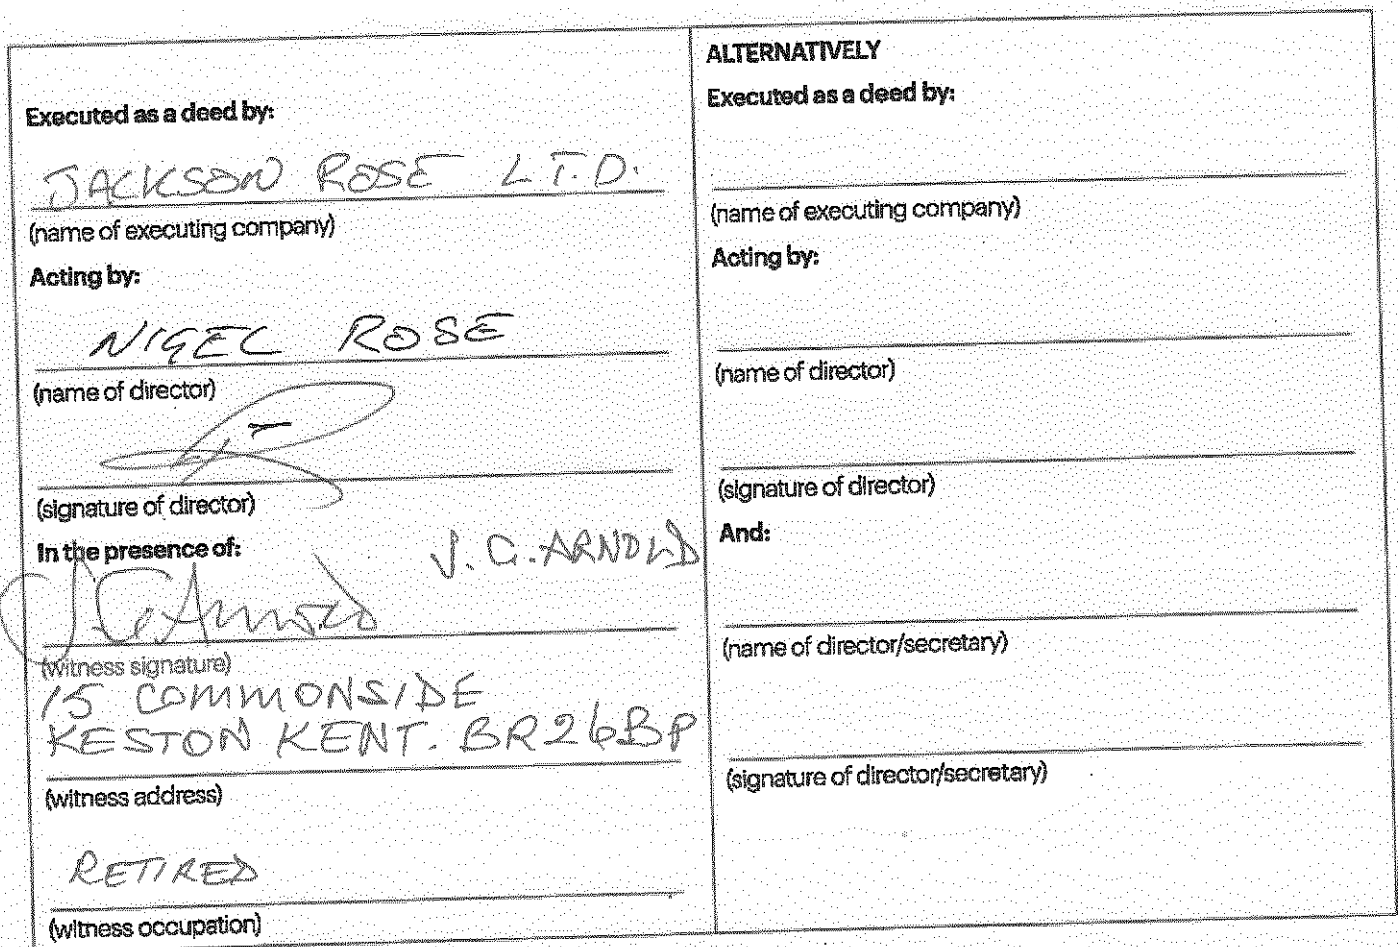 Executed as a deed by:
JACKSON ROSE LT.D.
(name of executing company)
Acting by:
NIGEL ROSE
(name of director)
(signature of director)
In the presence of:
J. C. ARNOLD
JCArnold
(witness signature)
15 COMMONSIDE
KESTON KENT. BR26BP
(witness address)
RETIRED
(witness occupation)
ALTERNATIVELY
Executed as a deed by:
(name of executing company)
Acting by:
(name of director)
(signature of director)
And:
(name of director/secretary)
(signature of director/secretary)